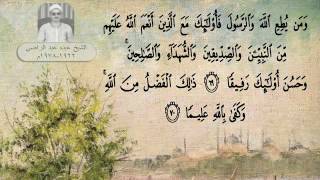 الشيخ عبده عبد الراضي
١٩٢٢-١٩٧٨م
وَمَن يُطِعِ ٱللَّهَ وَٱلرَّسُولَ فَأُو۟لَـٰٓئِكَ مَعَ ٱلَّذِينَ أَنْعَمَ ٱللَّهُ عَلَيْهِم
مِّنَ ٱلنَّبِيِّـۧنَ وَٱلصِّدِّيقِينَ وَٱلشُّهَدَآءِ وَٱلصَّـٰلِحِينَ ۚ
وَحَسُنَ أُو۟لَـٰٓئِكَ رَفِيقًا ٦٩ ذَٰلِكَ ٱلْفَضْلُ مِنَ ٱللَّهِ ۚ
وَكَفَىٰ بِٱللَّهِ عَلِيمًا ٧٠